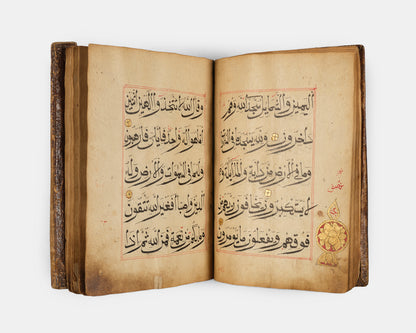 اليمين والشمايل سجدا لله وهم
داخرون ولله يسجد ما في السموات
وما في الارض من دابة والملئكة وهم
لا يستكبرون يخافون ربهم من
فوقهم ويفعلون ما يومرون
وقال الله لا تتخذوا الهين اثنين
انما هو اله واحد فاياي فارهبون
وله ما في السموات والارض وله
الدين واصبا افغير الله تتقون
وما بكم من نعمة فمن الله ثم اذا